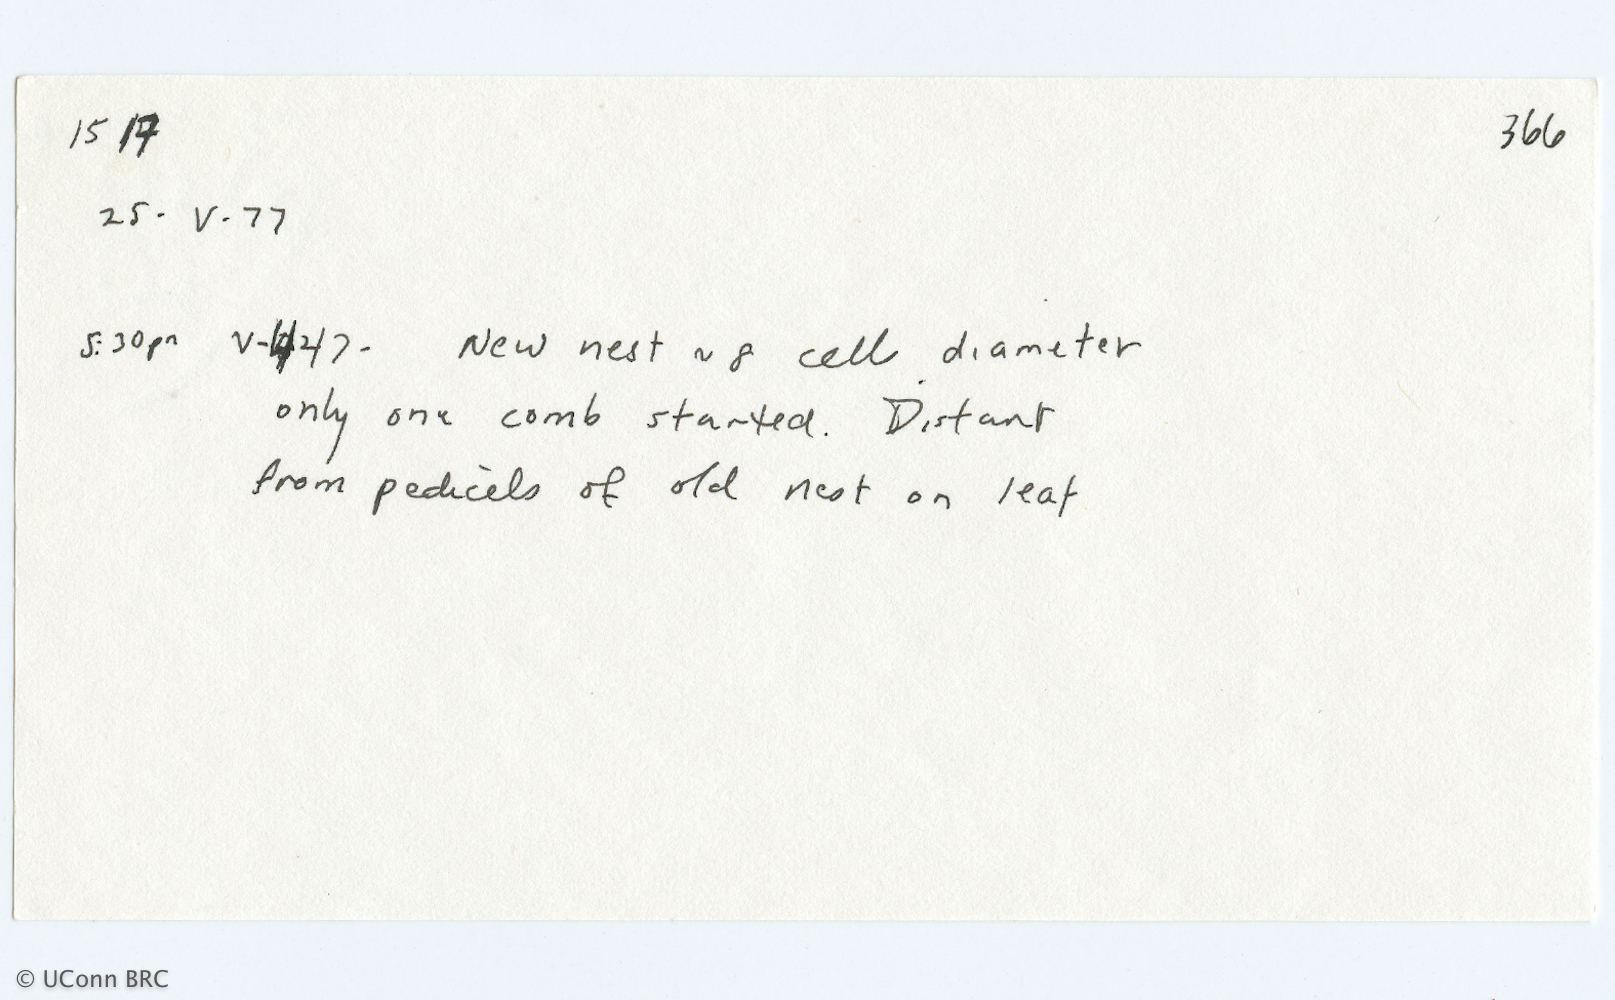 15 17
366
25 - V - 77
5:30pm V- 247 - New nest ~ 8 cell diameter
only one comb started. Distant
from pedicels of old nest on leaf
© UConn BRC